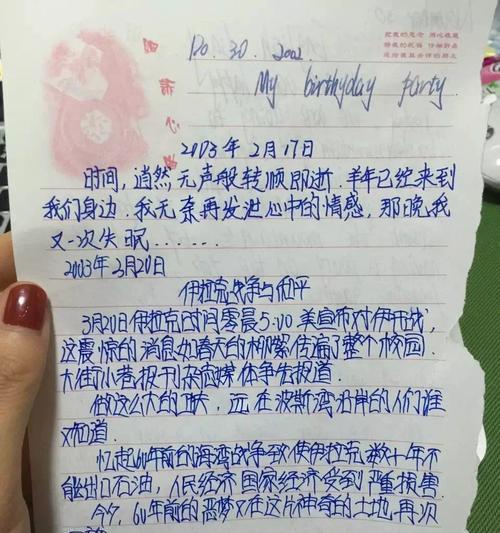 把我的思念 用心收藏
醇我的祝福 仔细折叠
送给最最去伴的朋友
Do . 30 . 2002
My birthyday party.
甜心
2003年 2月17日
时间,逍然无声般转顺即逝.羊年已经来到
我们身边.我无奈再发泄心中的情感,那晚我
又一次失眠......
2003年3月20日
伊拉克战争与和平
3月20日伊拉克时间零晨5:00美宣布对伊开战,
这震惊的消息如春天的柳絮传遍了整个校园.
大街小巷报刊杂志媒体争先报道.
做这么大的 远在波斯湾沿岸的人们谁
又知道.
忆起60年前的海湾战争致使伊拉克数十年不
能出口石油,人民经济国家经济受到严重损害.
今夕,60年前的恶梦又在这片神奇的土地,再次